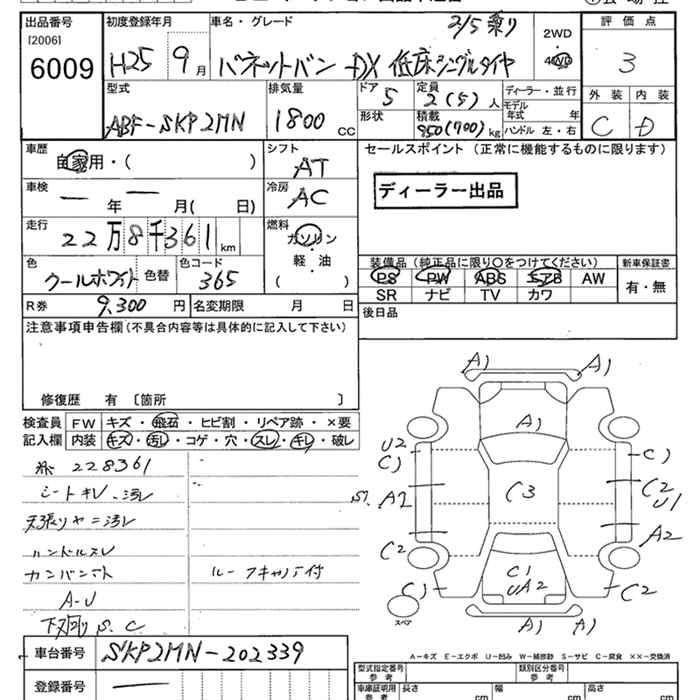 出品番号 初度登録年月 車名・グレード 2/5乗り 評価点
[2006]
6009 H25 9月 バネットバン DX 低床シングルタイヤ 2WD 4WD 3
型式 排気量 ドア 5 定員 2(5)人 ディーラー・並行 外装 内装
ABF-SKP2MN 1800cc 形状 積載 850(700)kg モデル年式 年 ハンドル 左・右 C D
車歴 シフト セールスポイント(正常に機能するものに限ります)
自家用・( ) AT
車検 冷房 ディーラー出品
ー年ー月( 日) AC
走行 燃料
22万8千361km ガソリン・軽・油( )
色 色替 色コード 装備品(純正品に限り○をつけてください) 新車保証書
クールホワイト 365 PS PW ABS エアB AW 有・無
SR ナビ TV カワ
R券 9,300円 名変期限 月 日 後日品
注意事項申告欄(不具合内容等は具体的に記入して下さい)
修復歴 有 〔箇所 〕
検査員 FW キズ・飛石・ヒビ割・リペア跡・×要
記入欄 内装 キズ・汚し・コゲ・穴・スレ・キレ・破レ
228361
シートキレ・汚レ
天張りヤニ汚レ
ハンドルスレ
カンバント
ルーフキャリア付
A-U
下廻りS.C
A1 A1
A1
U2
C1 C1
C3
S1 A2 C2
U1
A2
C2
C1 C1 C2
UA2
A1 A1
スペア
A-キズ E-エクボ U-凹み W-補修跡 S-サビ C-腐食 ××-交換済
車台番号 SKP2MN-202339
登録番号 ー
型式指定番号 参考 類別区分番号 参考
車庫証明用 参考 長さ cm 幅 cm 高さ cm